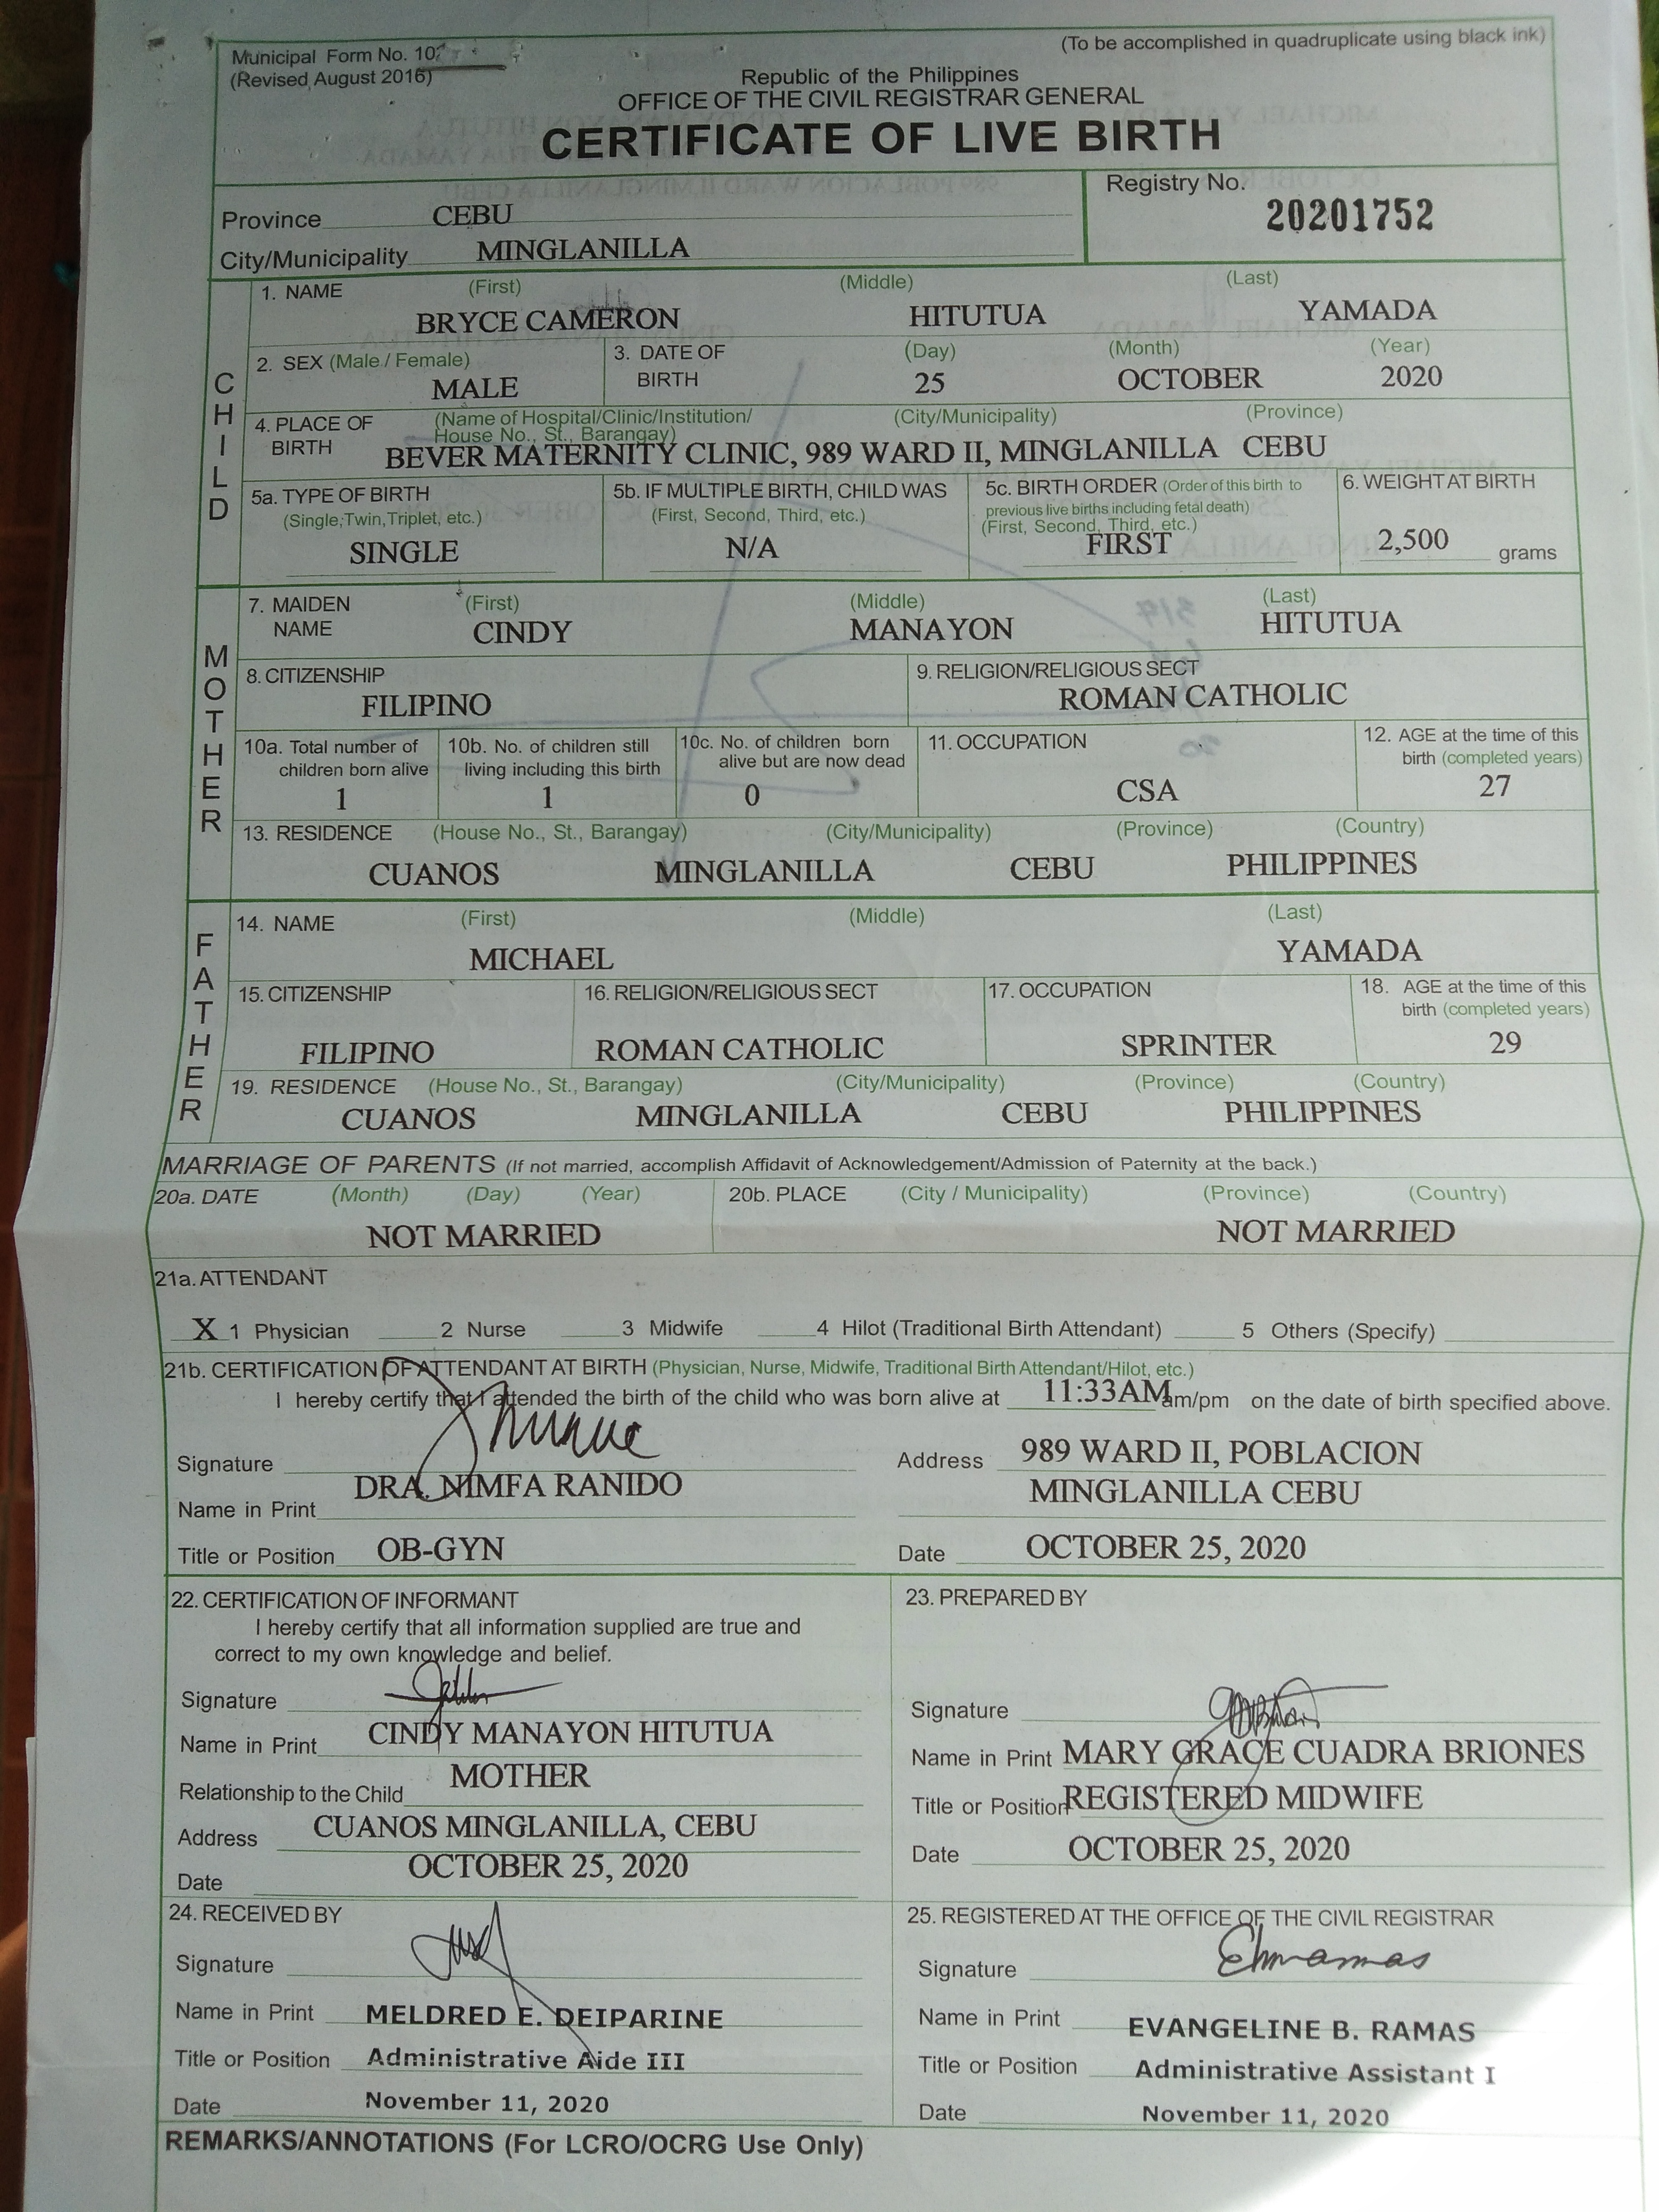 Municipal Form No. 102
(Revised August 2016)
(To be accomplished in quadruplicate using black ink)
Republic of the Philippines
OFFICE OF THE CIVIL REGISTRAR GENERAL
CERTIFICATE OF LIVE BIRTH
Province CEBU
City/Municipality MINGLANILLA
Registry No.
20201752
CHILD
1. NAME (First) (Middle) (Last)
BRYCE CAMERON HITUTUA YAMADA
2. SEX (Male / Female)
MALE
3. DATE OF BIRTH (Day) (Month) (Year)
25 OCTOBER 2020
4. PLACE OF BIRTH (Name of Hospital/Clinic/Institution/ House No., St., Barangay) (City/Municipality) (Province)
BEVER MATERNITY CLINIC, 989 WARD II, MINGLANILLA CEBU
5a. TYPE OF BIRTH
(Single,Twin,Triplet, etc.)
SINGLE
5b. IF MULTIPLE BIRTH, CHILD WAS
(First, Second, Third, etc.)
N/A
5c. BIRTH ORDER (Order of this birth to
previous live births including fetal death)
(First, Second, Third, etc.)
FIRST
6. WEIGHT AT BIRTH
2,500 grams
MOTHER
7. MAIDEN NAME (First) (Middle) (Last)
CINDY MANAYON HITUTUA
8. CITIZENSHIP
FILIPINO
9. RELIGION/RELIGIOUS SECT
ROMAN CATHOLIC
10a. Total number of
children born alive
1
10b. No. of children still
living including this birth
1
10c. No. of children born
alive but are now dead
0
11. OCCUPATION
CSA
12. AGE at the time of this
birth (completed years)
27
13. RESIDENCE (House No., St., Barangay) (City/Municipality) (Province) (Country)
CUANOS MINGLANILLA CEBU PHILIPPINES
FATHER
14. NAME (First) (Middle) (Last)
MICHAEL YAMADA
15. CITIZENSHIP
FILIPINO
16. RELIGION/RELIGIOUS SECT
ROMAN CATHOLIC
17. OCCUPATION
SPRINTER
18. AGE at the time of this
birth (completed years)
29
19. RESIDENCE (House No., St., Barangay) (City/Municipality) (Province) (Country)
CUANOS MINGLANILLA CEBU PHILIPPINES
MARRIAGE OF PARENTS (If not married, accomplish Affidavit of Acknowledgement/Admission of Paternity at the back.)
20a. DATE (Month) (Day) (Year)
NOT MARRIED
20b. PLACE (City / Municipality) (Province) (Country)
NOT MARRIED
21a. ATTENDANT
X 1 Physician 2 Nurse 3 Midwife 4 Hilot (Traditional Birth Attendant) 5 Others (Specify)
21b. CERTIFICATION OF ATTENDANT AT BIRTH (Physician, Nurse, Midwife, Traditional Birth Attendant/Hilot, etc.)
I hereby certify that I attended the birth of the child who was born alive at 11:33AM am/pm on the date of birth specified above.
Signature
Name in Print DRA. NIMFA RANIDO
Title or Position OB-GYN
Address 989 WARD II, POBLACION
MINGLANILLA CEBU
Date OCTOBER 25, 2020
22. CERTIFICATION OF INFORMANT
I hereby certify that all information supplied are true and
correct to my own knowledge and belief.
Signature
Name in Print CINDY MANAYON HITUTUA
Relationship to the Child MOTHER
Address CUANOS MINGLANILLA, CEBU
Date OCTOBER 25, 2020
23. PREPARED BY
Signature
Name in Print MARY GRACE CUADRA BRIONES
Title or Position REGISTERED MIDWIFE
Date OCTOBER 25, 2020
24. RECEIVED BY
Signature
Name in Print MELDRED E. DEIPARINE
Title or Position Administrative Aide III
Date November 11, 2020
25. REGISTERED AT THE OFFICE OF THE CIVIL REGISTRAR
Signature
Name in Print EVANGELINE B. RAMAS
Title or Position Administrative Assistant I
Date November 11, 2020
REMARKS/ANNOTATIONS (For LCRO/OCRG Use Only)